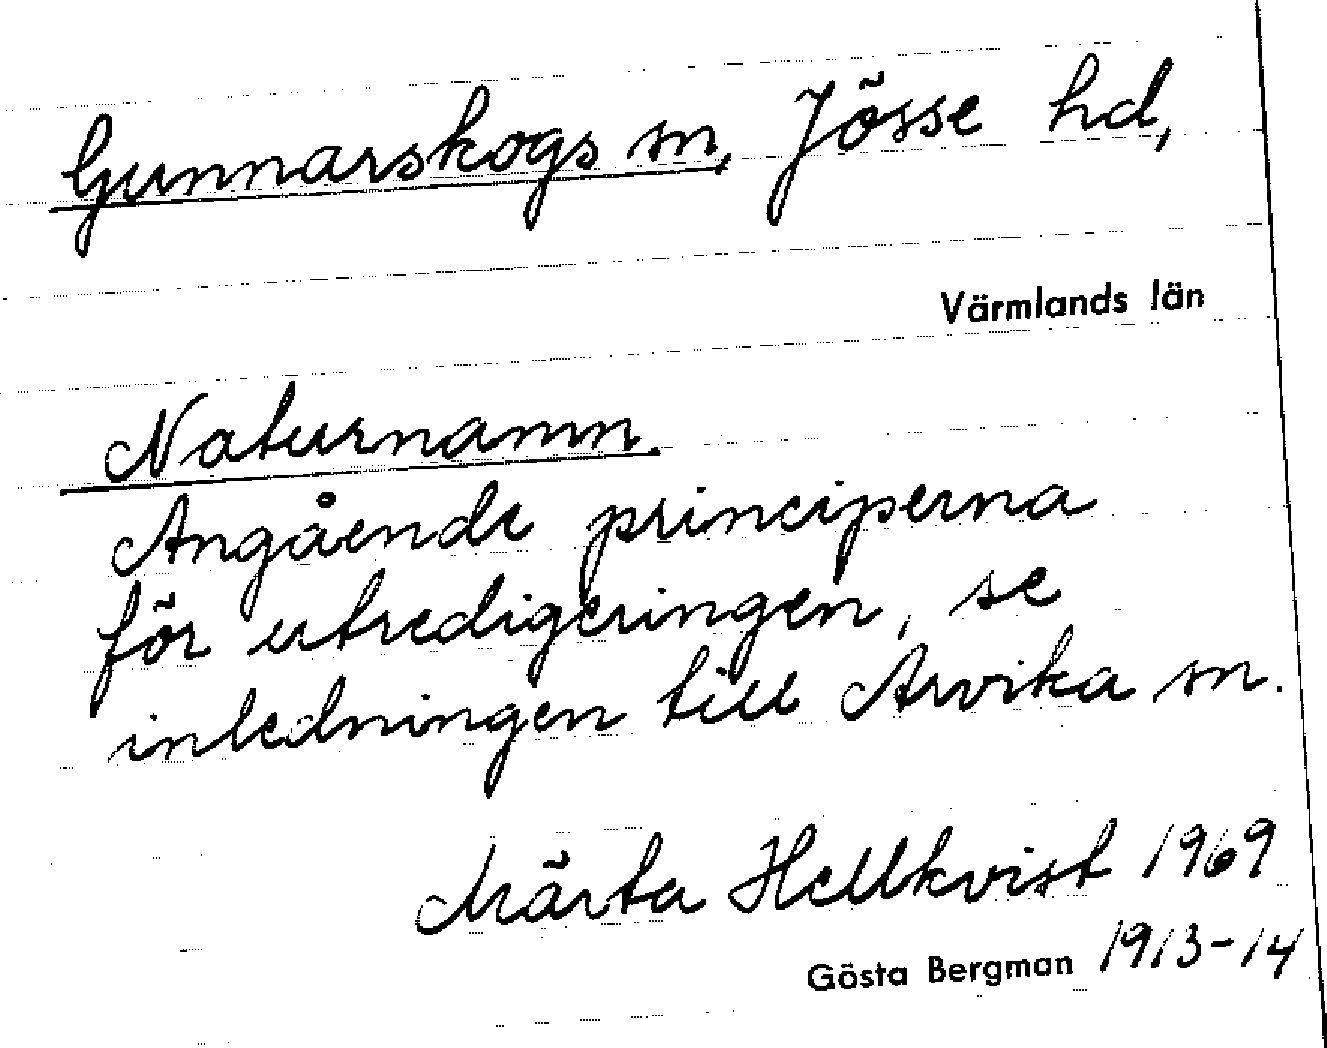 Gunnarskogs sn, Jösse hd,
Värmlands län
Naturnamn.
Angående principerna
för utredigeringen, se
inledningen till Arvika sn.
Märta Hellkvist 1969
Gösta Bergman 1913-14